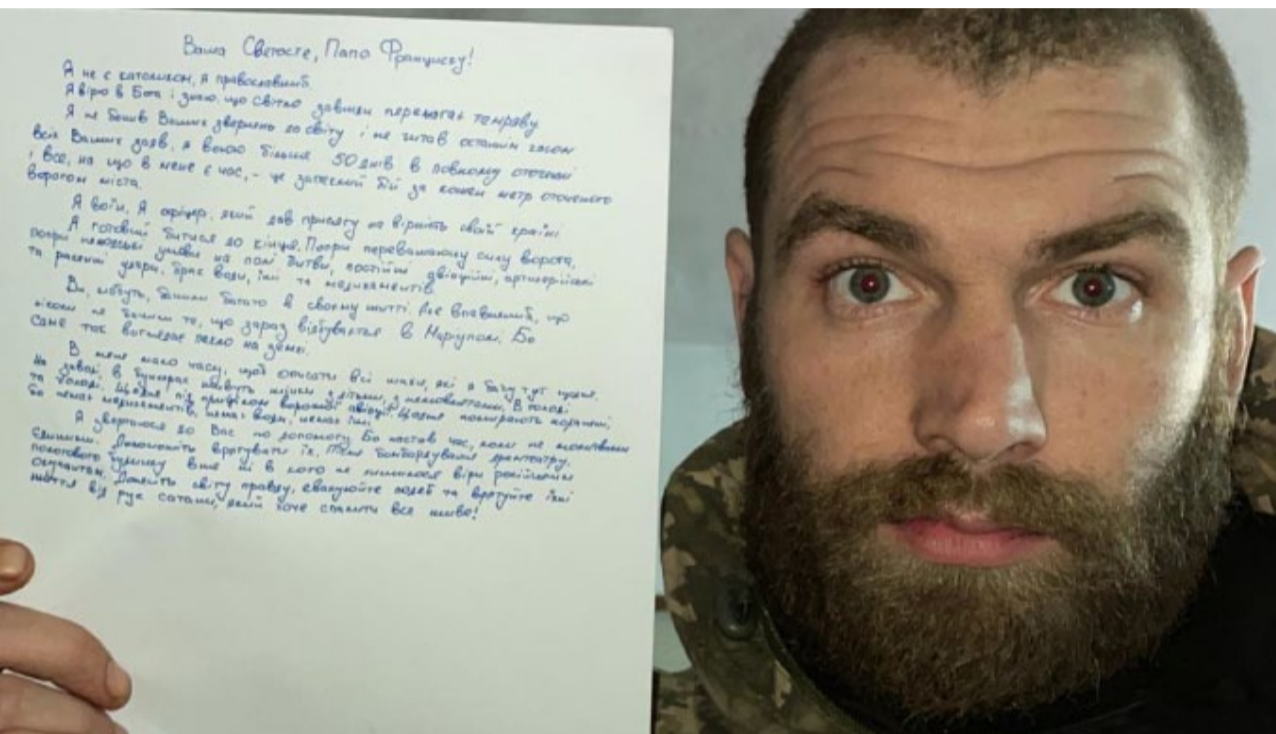 Ваша Светосте, Папо Франциску!
Я не є католиком, я православний.
Я вірю в Бога і знаю, що світло завжди перемагає темряву
Я не бачив Ваших звернень до світу і не читав останнім часом
всіх Ваших заяв, я воюю більше 50 днів в повному оточенні
і все, на що в мене є час, - це запеклий бій за кожен метр оточеного
ворогом міста.
Я воїн. Я офіцер, який дав присягу на вірність своїй країні
Я готовий битися до кінця. Попри переважаючу силу ворога,
попри нелюдські умови на полі битви, постійні авіаційні, артилерійські
та ракетні удари, брак води, їжі та медикаментів.
Ви, мабуть, бачили багато в своєму житті. Але впевнений, що
ніколи не бачили те, що зараз відбувається в Маріуполі. Бо
саме так виглядає пекло на землі.
В мене мало часу, щоб описати всі жахи, які я бачу тут щодня.
На заводі в бункерах живуть жінки з дітьми, з немовлятами. В голоді
та холоді. Щодня під прицілом ворожої авіації. Щодня помирають поранені,
бо немає медикаментів, немає води, немає їжі.
Я звертаюся до Вас по допомогу. Бо настав час, коли не молитвами
єдиними. Допоможіть врятувати їх. Після бомбардування драмтеатру,
пологового будинку вже ні в кого не лишилося віри російським
окупантам. Донесіть світу правду, евакуюйте людей та врятуйте їхні
життя від рук сатани, який хоче спалити все живе!